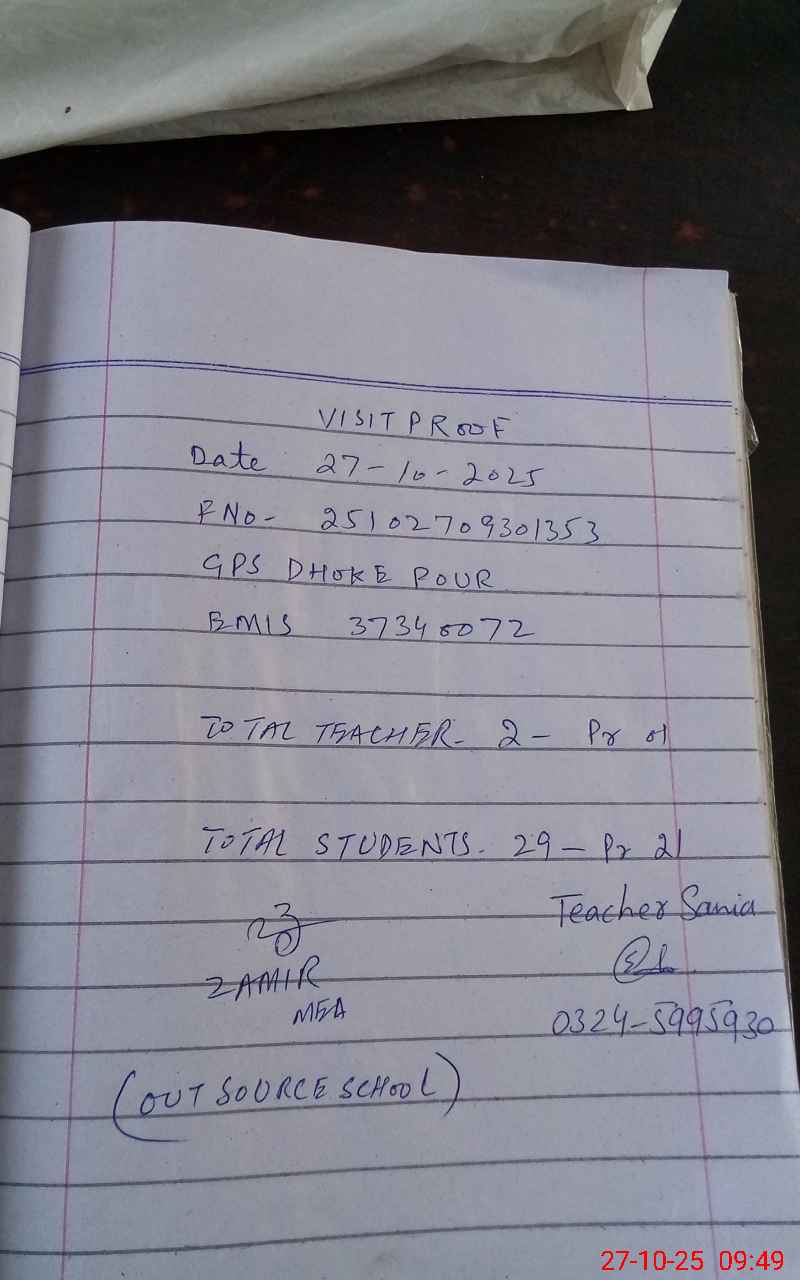 VISIT PROOF
Date 27-10-2025
F No- 25102709301353
GPS DHOKE POUR
EMIS 37340072
TOTAL TEACHER- 2 - Pr 01
TOTAL STUDENTS- 29 - Pr 21
Teacher Sania
ZAMIR
MEA
0324-5995930
(OUT SOURCE SCHOOL)
27-10-25 09:49